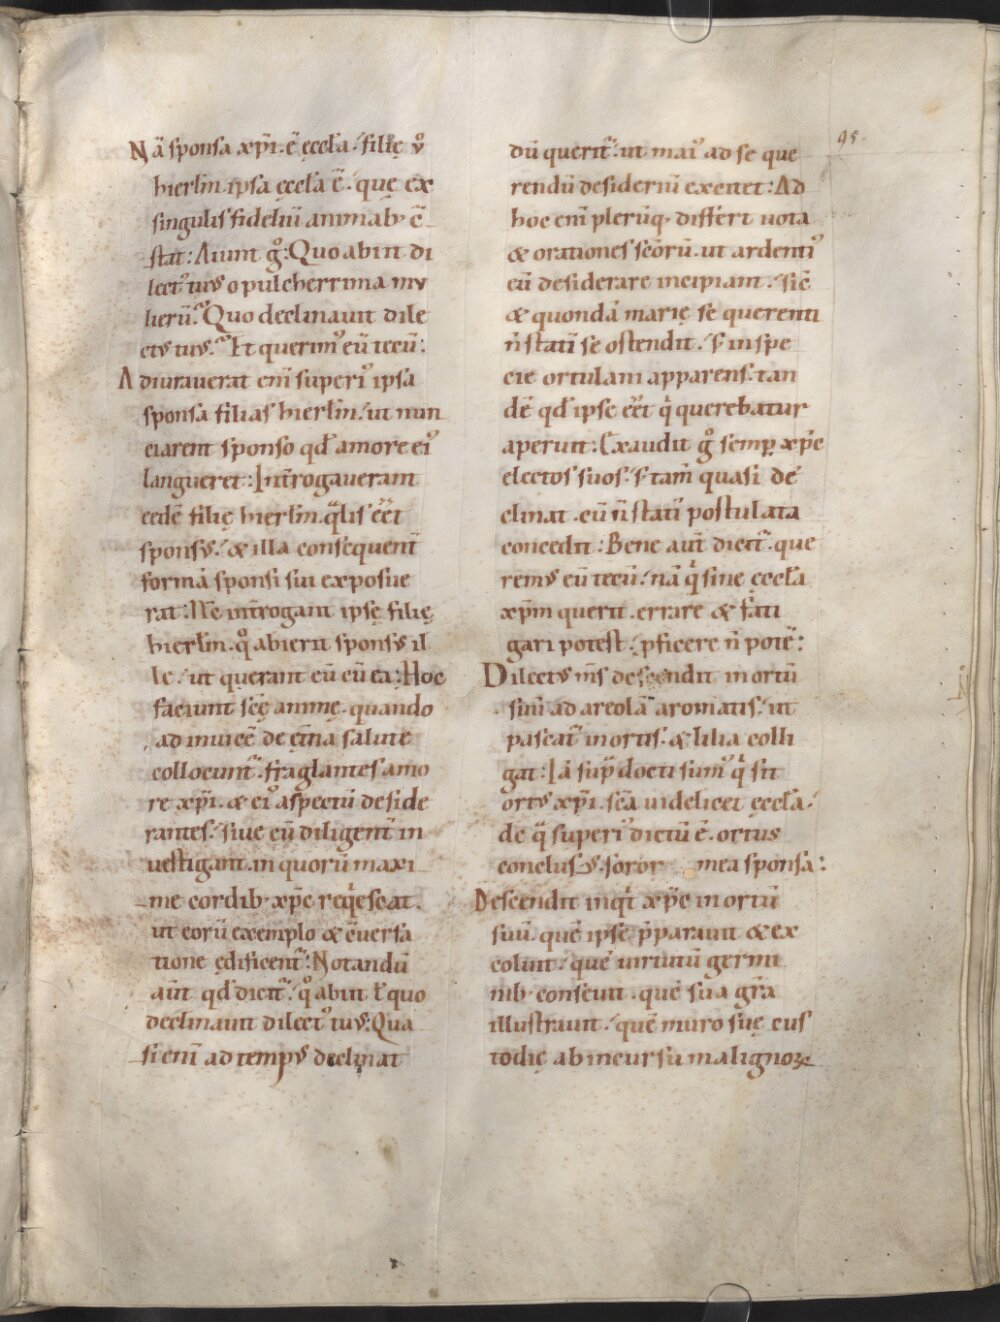 95.
Nā sponsa xp̄i. ē ęccl̄a. filię v̊
hierl̄m. ipsa ęccl̄a ē. quę ex
singulis fideliū animab; ē
stat: Aiunt g̊: Quo abiit di
lect᷒ tuus o pulcherrima mu
lierū? Quo declinauit dile
ctus tuus? Et querim᷒ eū tecū:
Adiuraverat enī superi᷒ ipsa
sponsa filias hierl̄m. ut nun
ciarent sponso qđ amore ei᷒
langueret: Int̄rogaverant
eedē filię hierl̄m. q̄lis eēt
sponsus. & illa consequent̄
formā sponsi sui exposue
rat: Nc̄ int̄rogant ipsę filię
hierl̄m. q̊ abierit sponsus il
le. ut querant eū cū ea: Hoc
faciunt sc̄ę animę. quando
ad inuicē de ęt̄na salute
collocunt̄. fraglantes amo
re xp̄i. & ei᷒ aspectū deside
rantes. siue eū diligent̄ in
uestigant. in quorū maxi
me cordib; xp̄c req̇escat.
ut eorū exemplo & c̄versa
tione ędificent̄: Notandū
aūt qđ dicit̄. q̊ abiit ł quo
declinauit dilect᷒ tuus: Qua
si enī ad tempus declinat
dū querit̄. ut mai᷒ ad se que
rendū desideriū excitet: Ad
hoc enī plerūq; differt uota
& orationes sc̄orū. ut ardenti᷒
eū desiderare incipiant. sic̄
& quondā marię se querenti
n̄ statī se ostendit. s; in spe
cie ortulani apparens. tan
dē qđ ipse eēt q̇ querebatur
aperuit: Exaudit g̊ semp xp̄c
electos suos. s; tam̄ quasi de
clinat. cū n̄ statī postulata
concedit: Bene aūt dicit̄. que
remus eū tecū. nā q̇ sine ęccl̄a
xp̄m querit. errare & fati
gari potest. pficere n̄ potē:
Dilectus m̄s descendit in ortū
suū ad areolā aromatis. ut
pascat̄ in ortis. & lilia colli
gat: Iā sup̄ docti sum᷒ q̇ sit
ortus xp̄i. sc̄a uidelicet ęccl̄a.
de q̄ superi᷒ dictū ē. ortus
conclusus. soror mea sponsa:
Descendit inq̇t xp̄c in ortū
suū. quē ipse p̄parauit & ex
coluit. quē uirtutū germi
nib; conseuit. quē sua gr̄a
illustrauit. quē muro suę cus
todię ab incursu malignoꝝ